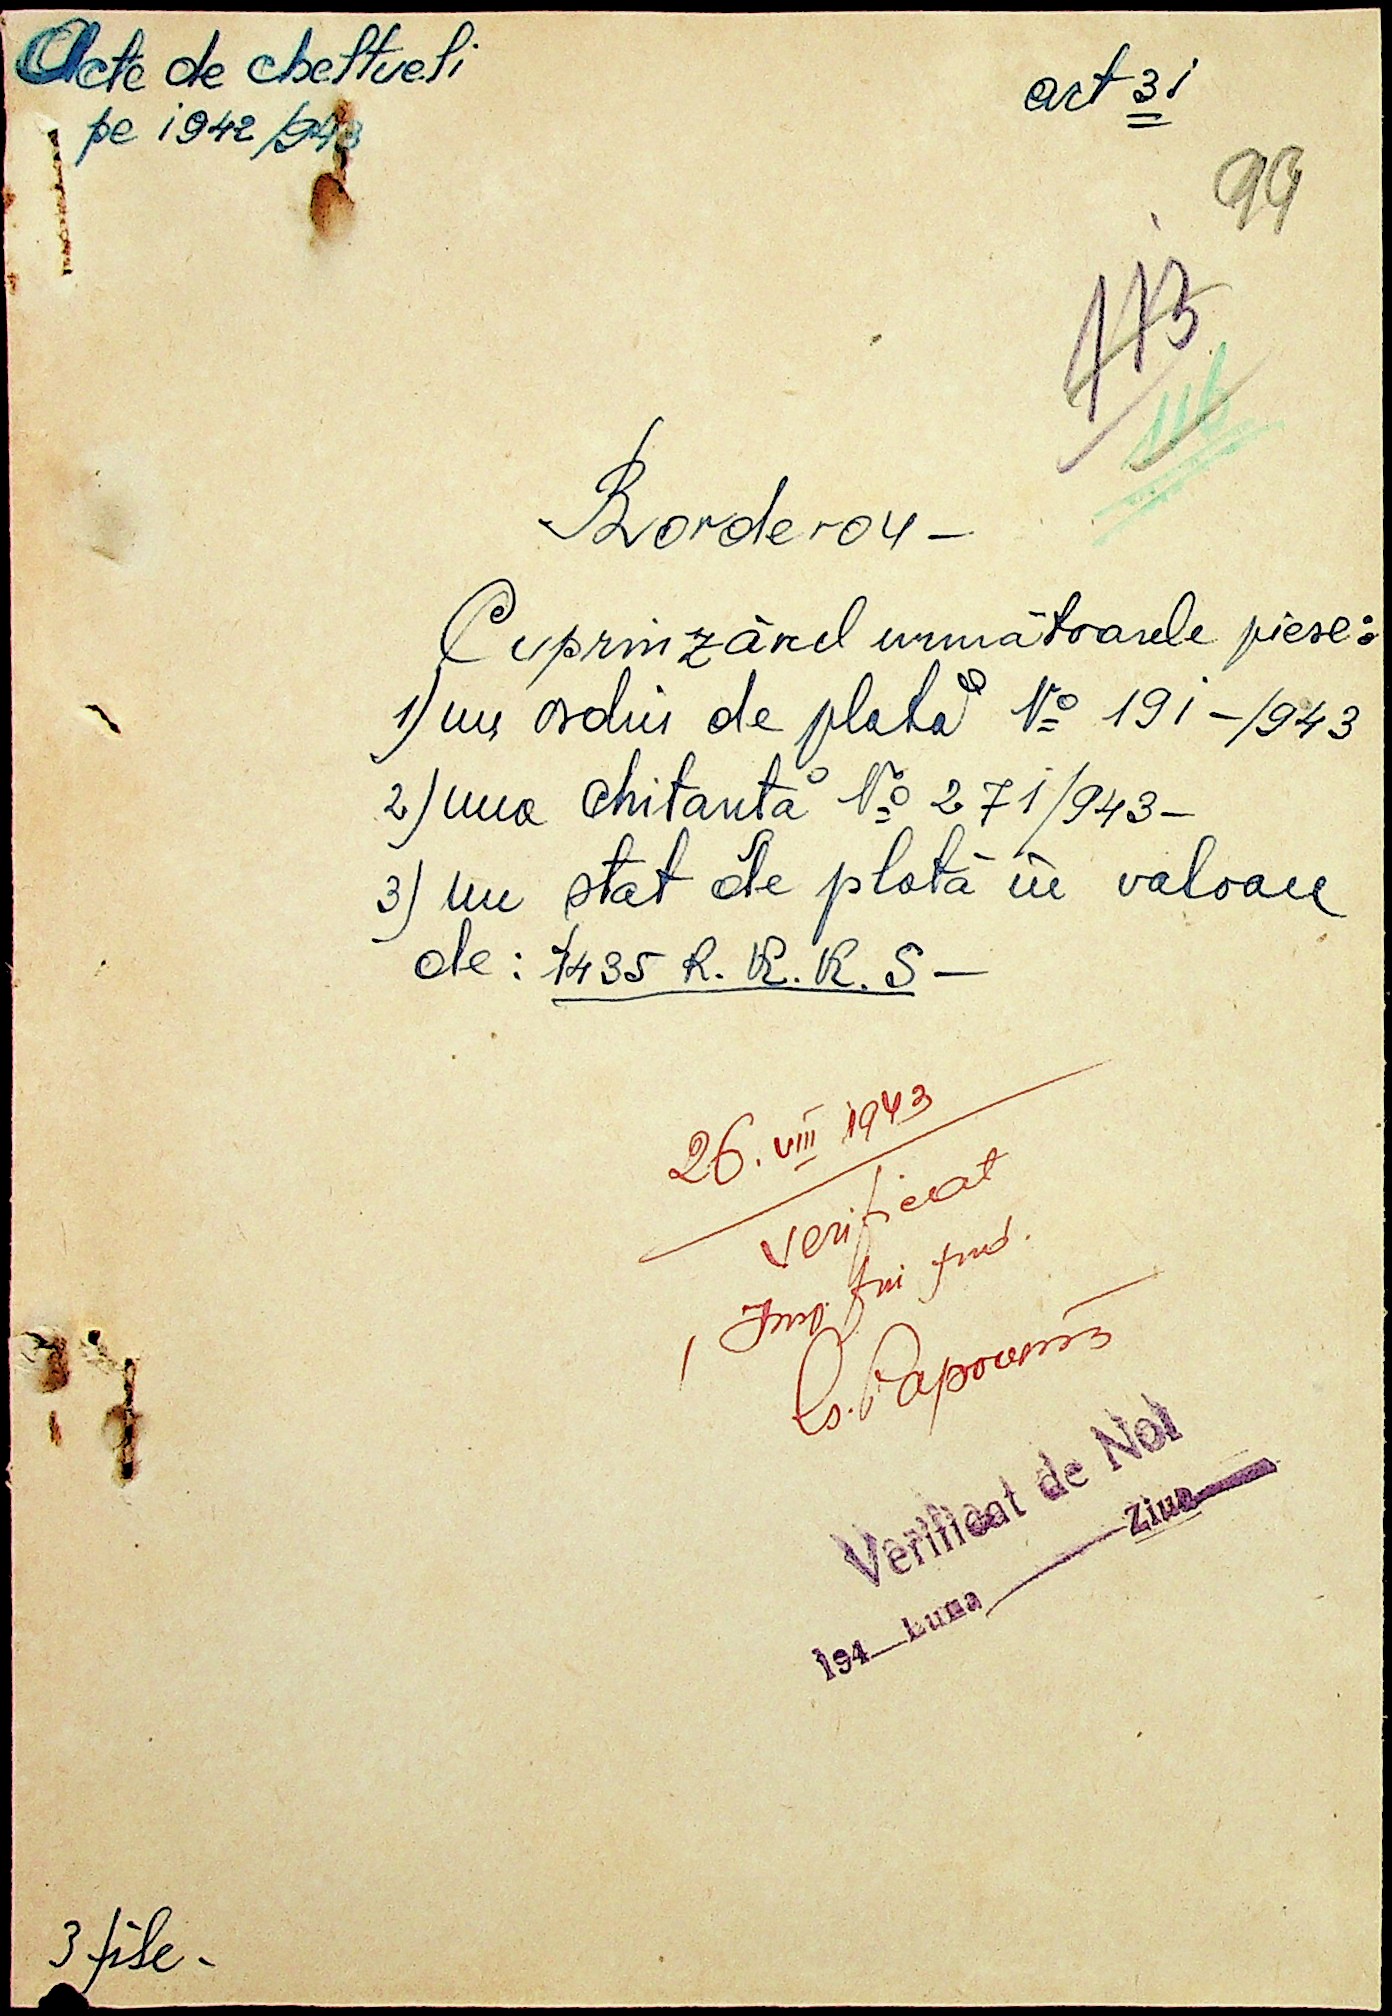 Acte de cheltueli
pe 1942/943
art 31
99
113
116
Borderou-
Cuprinzând următoarele piese:
1) un ordin de plată No 191-/943
2) una chitantă No 271/943-
3) un stat de plată în valoare
de: 1435 R.K.K.S-
26.VIII 1943
Verificat
Verificat de Noi
194 Luna Ziua
3 file-